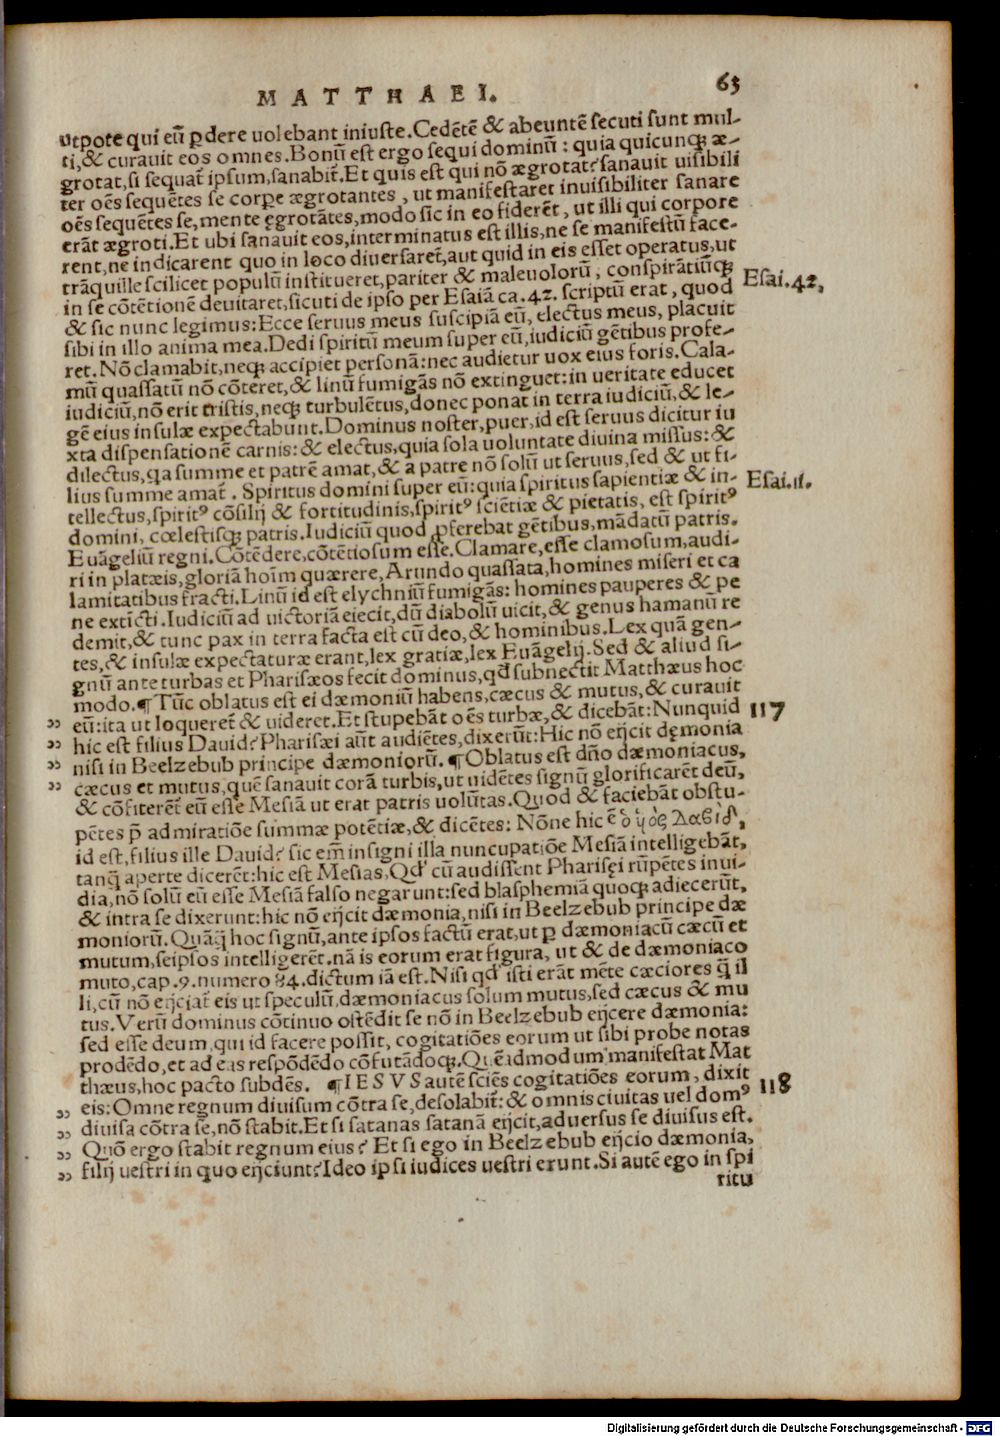 MATTHAEI. 63
utpote qui eũ ꝑdere uolebant iniuste.Cedẽtẽ & abeuntẽ secuti sunt mul-
ti,& curauit eos omnes.Bonũ est ergo sequi dominũ: quia quicunqꝫ æ-
grotat,si sequat̃ ipsum,sanabit̃.Et quis est qui nõ ægrotat? sanauit uisibili
ter oẽs sequẽtes se corpe ægrotantes, ut manifestaret inuisibiliter sanare
oẽs sequẽtes se,mente ęgrotãtes,modo sic in eo fiderẽt, ut illi qui corpore
erãt ægroti.Et ubi sanauit eos,interminatus est illis,ne se manifestũ face-
rent,ne indicarent quo in loco diuersaret̃,aut quid in eis esset operatus,ut
trãquille scilicet populũ institueret,pariter & maleuolorũ, conspirãtiũqꝫ
in se cõtẽtionẽ deuitaret,sicuti de ipso per Esaiã ca.42. scriptũ erat, quod
Esai.42,
& sic nunc legimus:Ecce seruus meus suscipiã eũ, electus meus, placuit
sibi in illo anima mea.Dedi spiritũ meum super eũ,iudiciũ gẽtibus profe-
ret.Nõ clamabit,neqꝫ accipiet personã:nec audietur uox eius foris.Cala-
mũ quassatũ nõ cõteret,& linũ fumigãs nõ extinguet:in ueritate educet
iudiciũ,nõ erit tristis,neqꝫ turbulẽtus,donec ponat in terra iudiciũ,& le-
gẽ eius insulæ expectabunt.Dominus noster,puer,id est seruus dicitur iu
xta dispensationẽ carnis: & electus,quia sola uoluntate diuina missus: &
dilectus,qa summe et patrẽ amat,& a patre nõ solũ ut seruus,sed & ut fi-
lius summe amat̃. Spiritus domini super eũ:quia spiritus sapientiæ & in-
Esai.11.
tellectus,spiritꝰ cõsilij & fortitudinis,spiritꝰ sciẽtiæ & pietatis, est spiritꝰ
domini, cœlestisqꝫ patris.Iudiciũ quod ꝓferebat gẽtibus,mãdatũ patris.
Euãgeliũ regni.Cõtẽdere,cõtẽtiosum esse.Clamare,esse clamosum,audi-
ri in platæis,gloriã hoĩm quærere,Arundo quassata,homines miseri et ca
lamitatibus fracti.Linũ id est elychniũ fumigãs: homines pauperes & pe
ne extĩcti.Iudiciũ ad uictoriã eiecit,dũ diabolũ uicit,& genus hamanũ re
demit,& tunc pax in terra facta est cũ deo,& hominibus.Lex quã gen-
tes,& insulæ expectaturæ erant,lex gratiæ,lex Euãgelij.Sed & aliud si-
gnũ ante turbas et Pharisæos fecit dominus,qd̃ subnectit Matthæus hoc
modo.¶Tũc oblatus est ei dæmoniũ habens,cæcus & mutus,& curauit
eũ:ita ut loqueret̃ & uideret.Et stupebãt oẽs turbæ,& dicebãt:Nunquid 117
hic est filius Dauid? Pharisæi aũt audiẽtes,dixerũt:Hic nõ eijcit dęmonia
nisi in Beelzebub principe dæmoniorũ. ¶Oblatus est dño dæmoniacus,
cæcus et mutus,quẽ sanauit corã turbis,ut uidẽtes signũ glorificarẽt deũ,
& cõfiterẽt̃ eũ esse Mesiã ut erat patris uolũtas.Quod & faciebãt obstu-
pẽtes p̃ admiratiõe summæ potẽtiæ,& dicẽtes: Nõne hic ẽ ὁ ὑὸς Δαβὶδ,
id est,filius ille Dauid? sic em̃ insigni illa nuncupatiõe Mesiã intelligebãt,
tanq̃ aperte dicerẽt:hic est Mesias.Qd̃ cũ audissent Pharisęi rũpẽtes inui-
dia,nõ solũ eũ esse Mesiã falso negarunt:sed blasphemiã quoqꝫ adiecerũt,
& intra se dixerunt:hic nõ eijcit dæmonia,nisi in Beelzebub principe dæ
moniorũ.Quãq̃ hoc signũ,ante ipsos factũ erat,ut ꝑ dæmoniacũ cæcũ et
mutum,seipsos intelligerẽt.nã is eorum erat figura, ut & de dæmoniaco
muto,cap.9.numero 84.dictum iã est.Nisi qd̃ isti erãt mẽte cæciores q̃ il
li,cũ nõ eijciat̃ eis ut speculũ,dæmoniacus solum mutus,sed cæcus & mu
tus.Verũ dominus cõtinuo ostẽdit se nõ in Beelzebub eijcere dæmonia:
sed esse deum,qui id facere possit, cogitatiões eorum ut sibi probe notas
prodẽdo,et ad eas respõdẽdo cõfutãdoqꝫ.Quẽadmodum manifestat Mat
thæus,hoc pacto subdẽs. ¶IESVS autẽ sciẽs cogitatiões eorum, dixit 118
eis:Omne regnum diuisum cõtra se,desolabit̃: & omnis ciuitas uel domꝰ
diuisa cõtra se,nõ stabit.Et si satanas satanã eijcit,aduersus se diuisus est.
Quõ ergo stabit regnum eius? Et si ego in Beelzebub eijcio dæmonia,
filij uestri in quo eijciunt? Ideo ipsi iudices uestri erunt.Si autẽ ego in spi
ritu
Digitalisierung gefördert durch die Deutsche Forschungsgemeinschaft - DFG